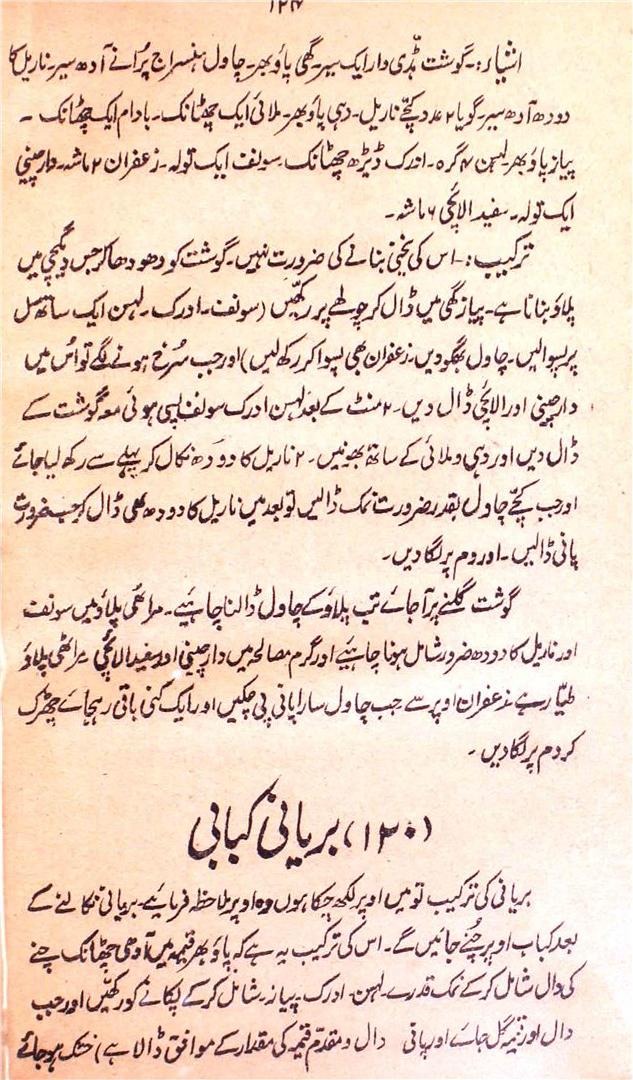 ۱۲۴
اشیاء:۔ گوشت ہڈی دار ایک سیر۔ گھی پاؤ بھر۔ چاول ہنسراج پرانے آدھ سیر۔ ناریل کا
دودھ آدھ سیر۔ گویا ۲ عدد کچے ناریل۔ دہی پاؤ بھر۔ ملائی ایک چھٹانک۔ بادام ایک چھٹانک۔
پیاز پاؤ بھر۔ لہسن ۴ گرہ۔ ادرک ڈیڑھ چھٹانک۔ سونف ایک تولہ۔ زعفران ۲ ماشہ۔ دارچینی
ایک تولہ۔ سفید الائچی ۶ ماشہ۔
ترکیب:۔ اس کی یخنی بنانے کی ضرورت نہیں۔ گوشت کو دھو دھا کر جس دیگچی میں
پلاؤ بنانا ہے۔ پیاز گھی میں ڈال کر چولھے پر رکھیں (سونف۔ ادرک۔ لہسن ایک ساتھ سل
پر پسوالیں۔ چاول بھگو دیں۔ زعفران بھی پسوا کر رکھ لیں) اور جب سرخ ہونے لگے تو اُس میں
دارچینی اور الائچی ڈال دیں۔ ۲ منٹ کے بعد لہسن ادرک سونف پسی ہوئی معہ گوشت کے
ڈال دیں اور دہی و ملائی کے ساتھ بھونیں۔ ۲ ناریل کا دودھ نکال کر پہلے سے رکھ لیا جائے
اور جب کچے چاول بقدر ضرورت نمک ڈالیں تو بعد میں ناریل کا دودھ بھی ڈال کر حسب ضرورت
پانی ڈالیں۔ اور دم پر لگا دیں۔
گوشت گلنے پر آجائے تب پلاؤ کے چاول ڈالنا چاہیے۔ مراٹھی پلاؤ میں سونف
اور ناریل کا دودھ ضرور شامل ہونا چاہیے اور گرم مصالحہ میں دارچینی اور سفید الائچی۔ مراٹھی پلاؤ
طیار ہے زعفران اوپر سے جب چاول سارا پانی پی چکیں اور ایک کنی باقی رہجائے چھڑک
کر دم پر لگا دیں۔
(۱۲۰) بریانی کبابی
بریانی کی ترکیب تو میں اوپر لکھ چکا ہوں وہ اوپر ملاحظہ فرمایئے۔ بریانی نکالنے کے
بعد کباب اوپر چُنے جائیں گے۔ اس کی ترکیب یہ ہے کہ پاؤ بھر قیمہ میں آدھی چھٹانک چنے
کی دال شامل کر کے نمک قدرے۔ لہسن۔ ادرک۔ پیاز۔ شامل کر کے پکانے کو رکھیں اور جب
دال اور قیمہ گل جائے اور پانی دال و مقدم قیمہ کی مقدار کے موافق ڈالا ہے) خشک ہو جائے